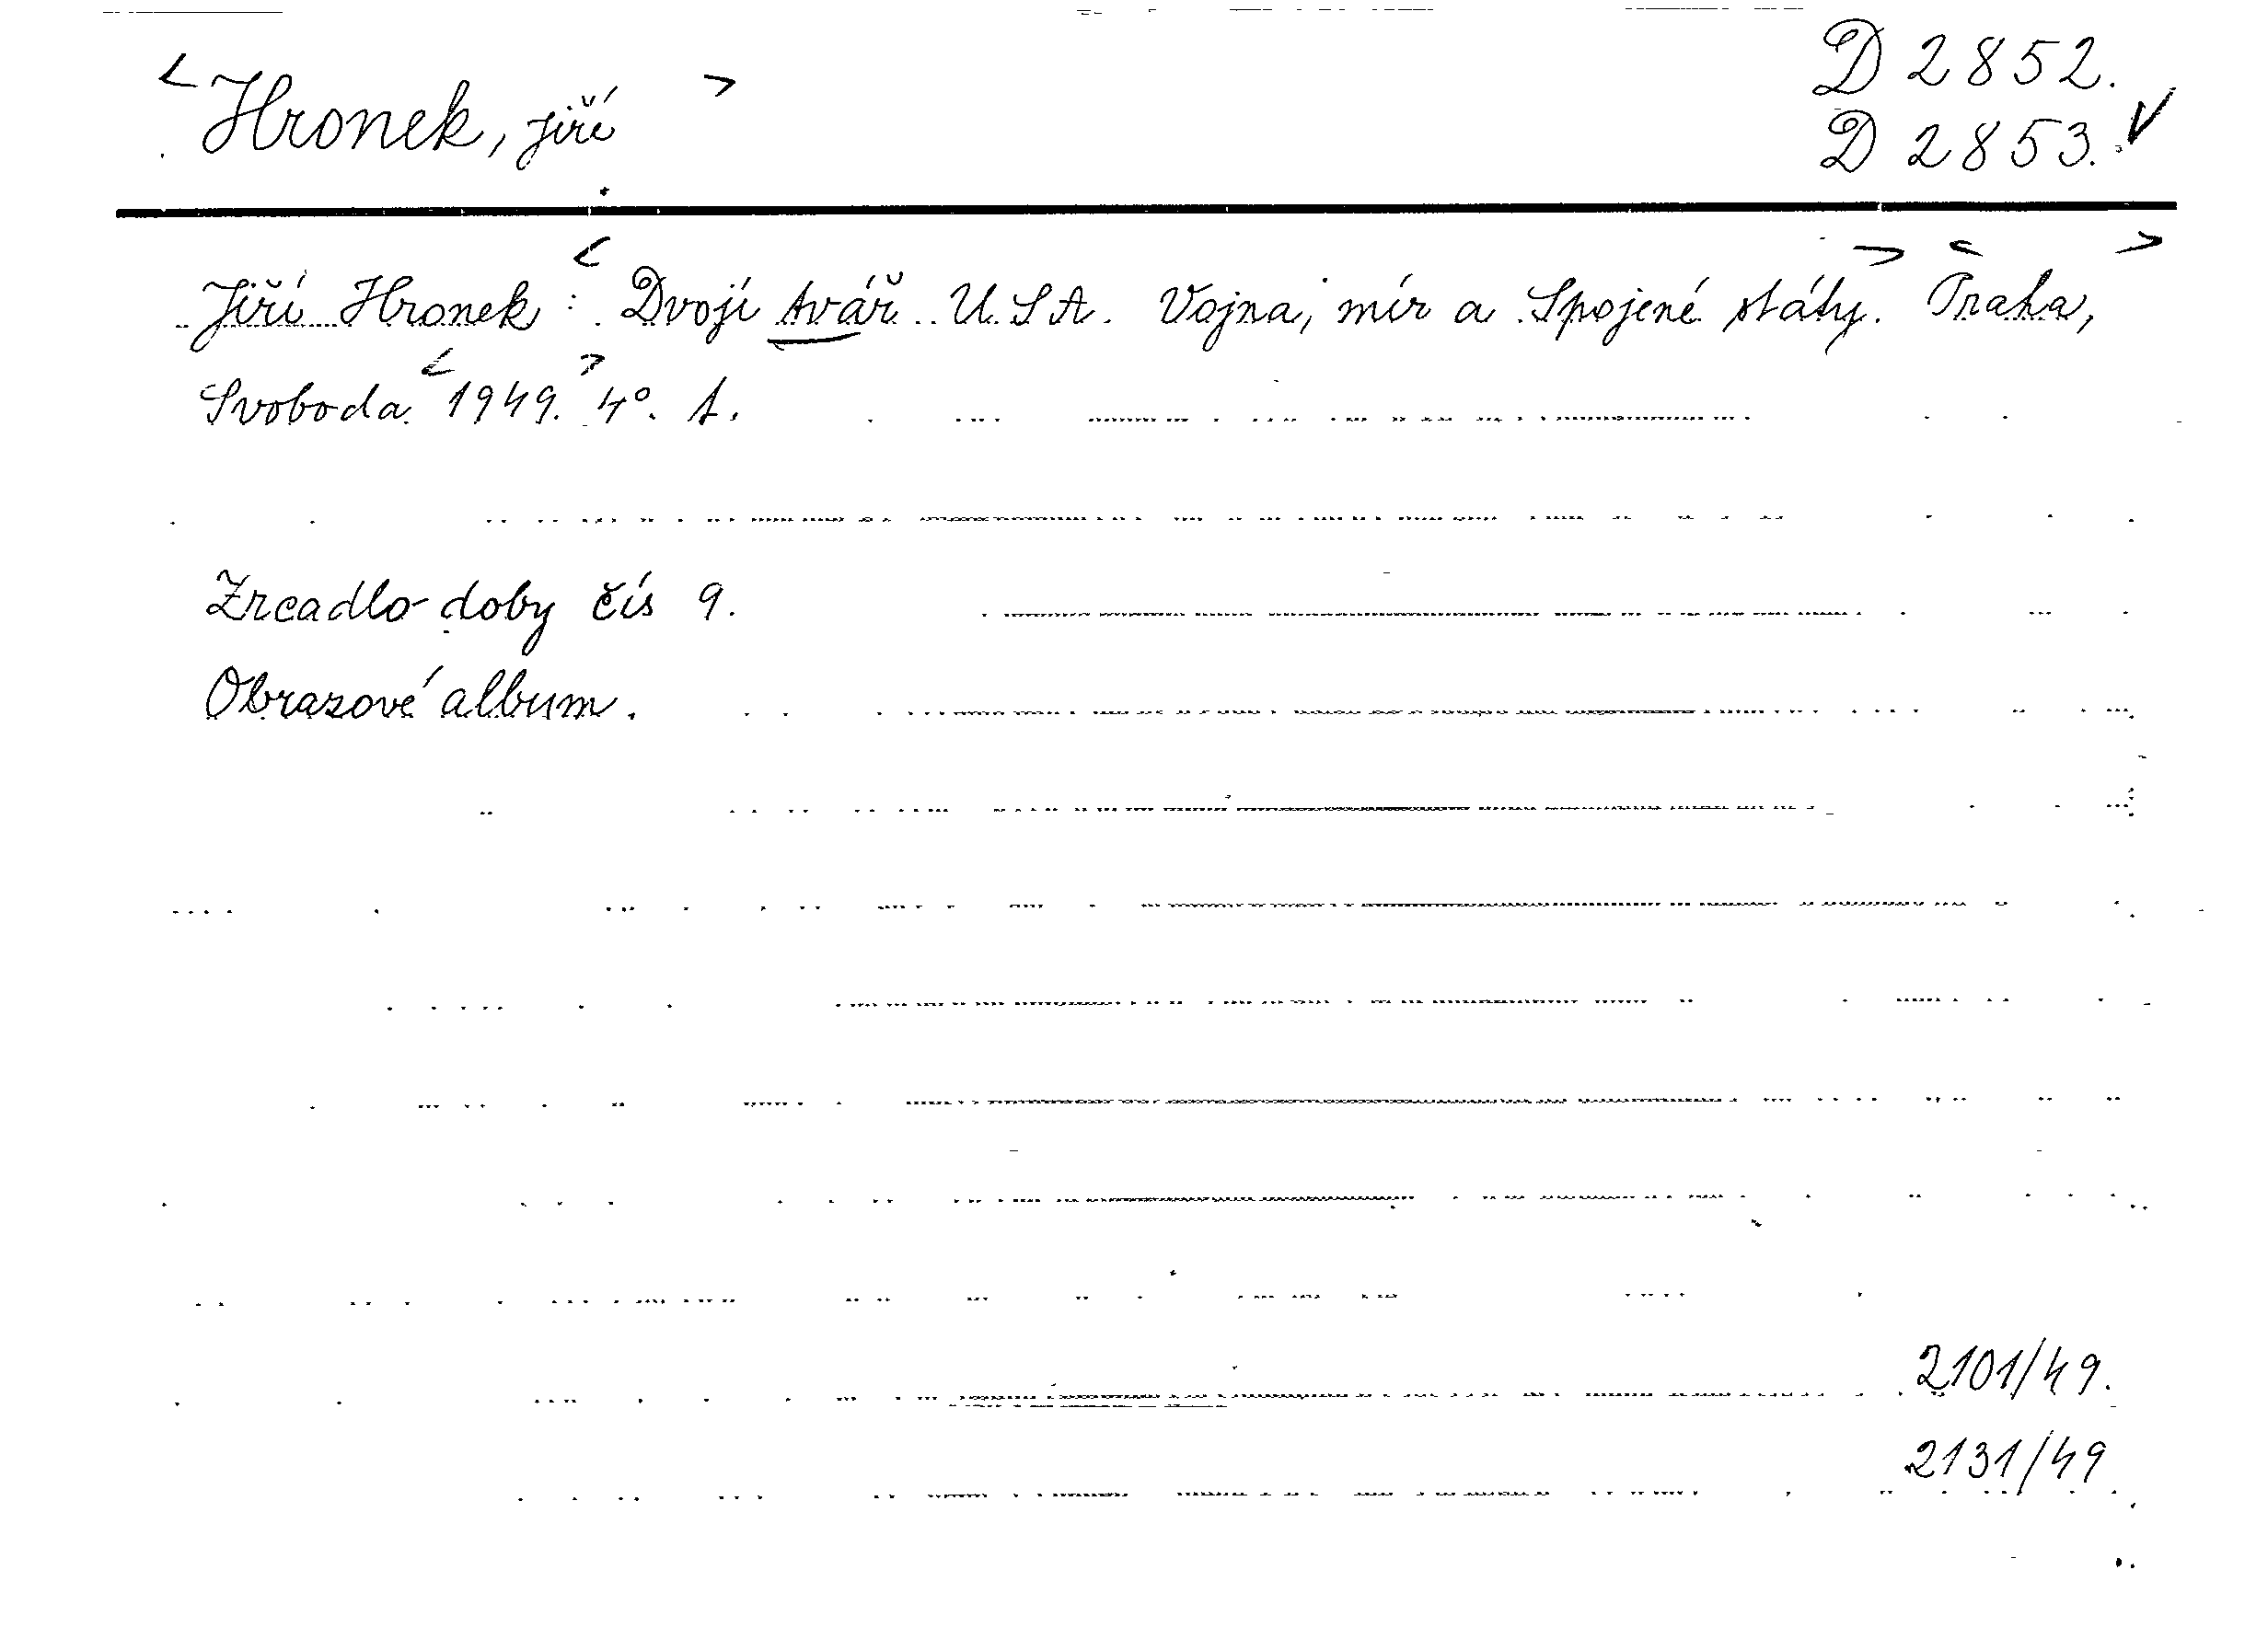 < Hronek, Jiří >
D 2852.
D 2853. √
Jiří Hronek: < Dvojí tvář U.S.A. Vojna, mír a Spojené státy. > < Praha, >
Svoboda < 1949. > 4°. 1.
Zrcadlo doby čís 9.
Obrazové album.
2101/49.
2131/49